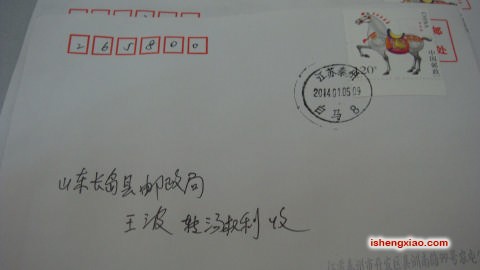 265800
邮
处
中国邮政
120
江苏泰州
2014.01.05.09
白马 8
山东长岛县邮政局
王波 转汤权利 收
ishengxiao.com